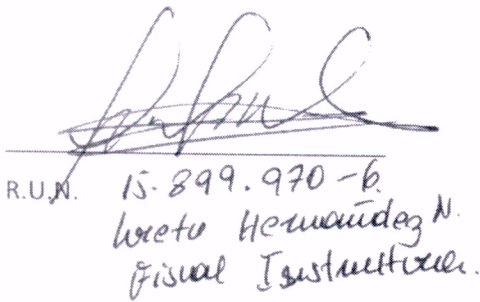 R.U.N. 15.899.970-6
Loreto Hernandez N.
Fiscal Instructora.